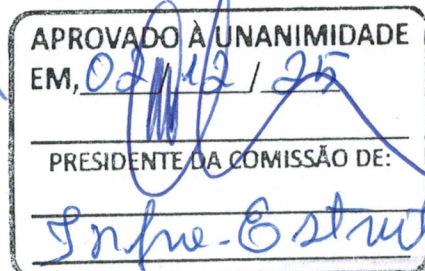 APROVADO À UNANIMIDADE
EM, 02 / 12 / 25
PRESIDENTE DA COMISSÃO DE:
Infra-Estrut